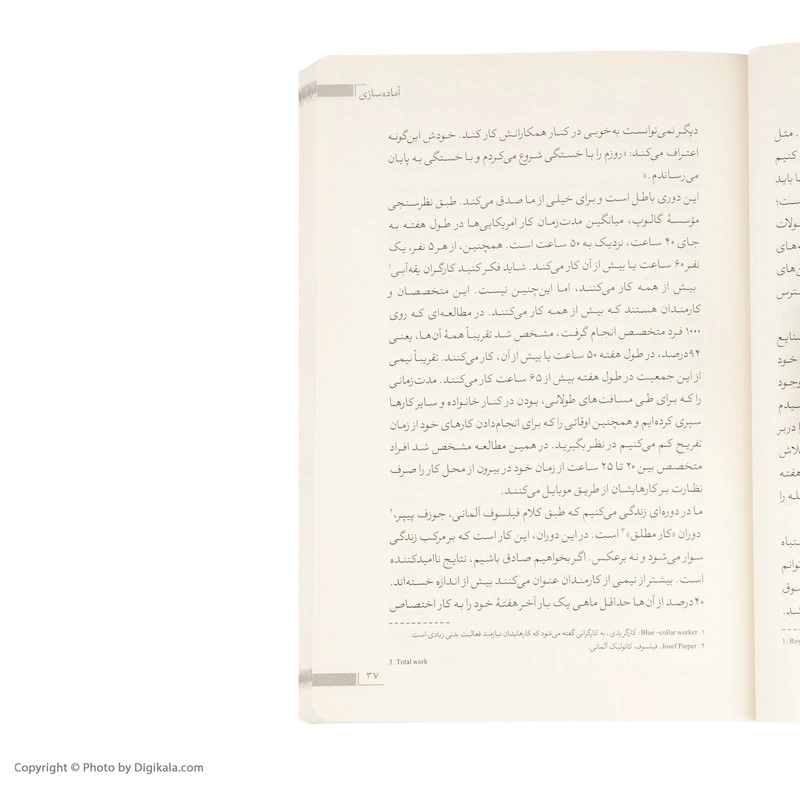 آماده‌سازی
دیگر نمی‌توانست به‌خوبی در کنار همکارانش کار کند. خودش این‌گونه
اعتراف می‌کند: «روزم را با خستگی شروع می‌کردم و با خستگی به پایان
می‌رساندم.»
این دوری باطل است و برای خیلی از ما صدق می‌کند. طبق نظرسنجی
مؤسسهٔ گالوپ، میانگین مدت‌زمان کار امریکایی‌ها در طول هفته به
جای ۴۰ ساعت، نزدیک به ۵۰ ساعت است. همچنین، از هر ۵ نفر، یک
نفر ۶۰ ساعت یا بیش از آن کار می‌کند. شاید فکر کنید کارگران یقه‌آبی۱
بیش از همه کار می‌کنند، اما این‌چنین نیست. این متخصصان و
کارمندان هستند که بیش از همه کار می‌کنند. در مطالعه‌ای که روی
۱۰۰۰ فرد متخصص انجام گرفت، مشخص شد تقریباً همهٔ آن‌ها، یعنی
۹۴درصد، در طول هفته ۵۰ ساعت یا بیش از آن، کار می‌کنند. تقریباً نیمی
از این جمعیت در طول هفته بیش از ۶۵ ساعت کار می‌کنند. مدت‌زمانی
را که برای طی مسافت‌های طولانی، بودن در کنار خانواده و سایر کارها
سپری کرده‌ایم و همچنین اوقاتی را که برای انجام‌دادن کارهای خود از زمان
تفریح کم می‌کنیم در نظر بگیرید. در همین مطالعه مشخص شد افراد
متخصص بین ۲۰ تا ۲۵ ساعت از زمان خود در بیرون از محل کار را صرف
نظارت بر کارهایشان از طریق موبایل می‌کنند.
ما در دوره‌ای زندگی می‌کنیم که طبق کلام فیلسوف آلمانی، جوزف پیپر،۲
دوران «کار مطلق»۳ است. در این دوران، این کار است که بر مرکب زندگی
سوار می‌شود و نه برعکس. اگر بخواهیم صادق باشیم، نتایج ناامیدکننده
است. بیشتر از نیمی از کارمندان عنوان می‌کنند بیش از اندازه خسته‌اند.
۴۰درصد از آن‌ها حداقل ماهی یک بار آخر هفتهٔ خود را به کار اختصاص
۱. Blue-collar worker: کارگریدی، به کارگرانی گفته می‌شود که کارهایشان نیازمند فعالیت بدنی زیادی است.
۲. Josef Pieper: فیلسوف کاتولیک آلمانی.
3. Total work
۳۷
. مثل
کنیم
باید
ست؛
ولات
ه‌های
ن‌های
ترس
صنایع
خود
وجود
سیدم
دربر
لاش
هفته
له را
تباه
توانم
سوق
شد.
1. Roy
Copyright © Photo by Digikala.com